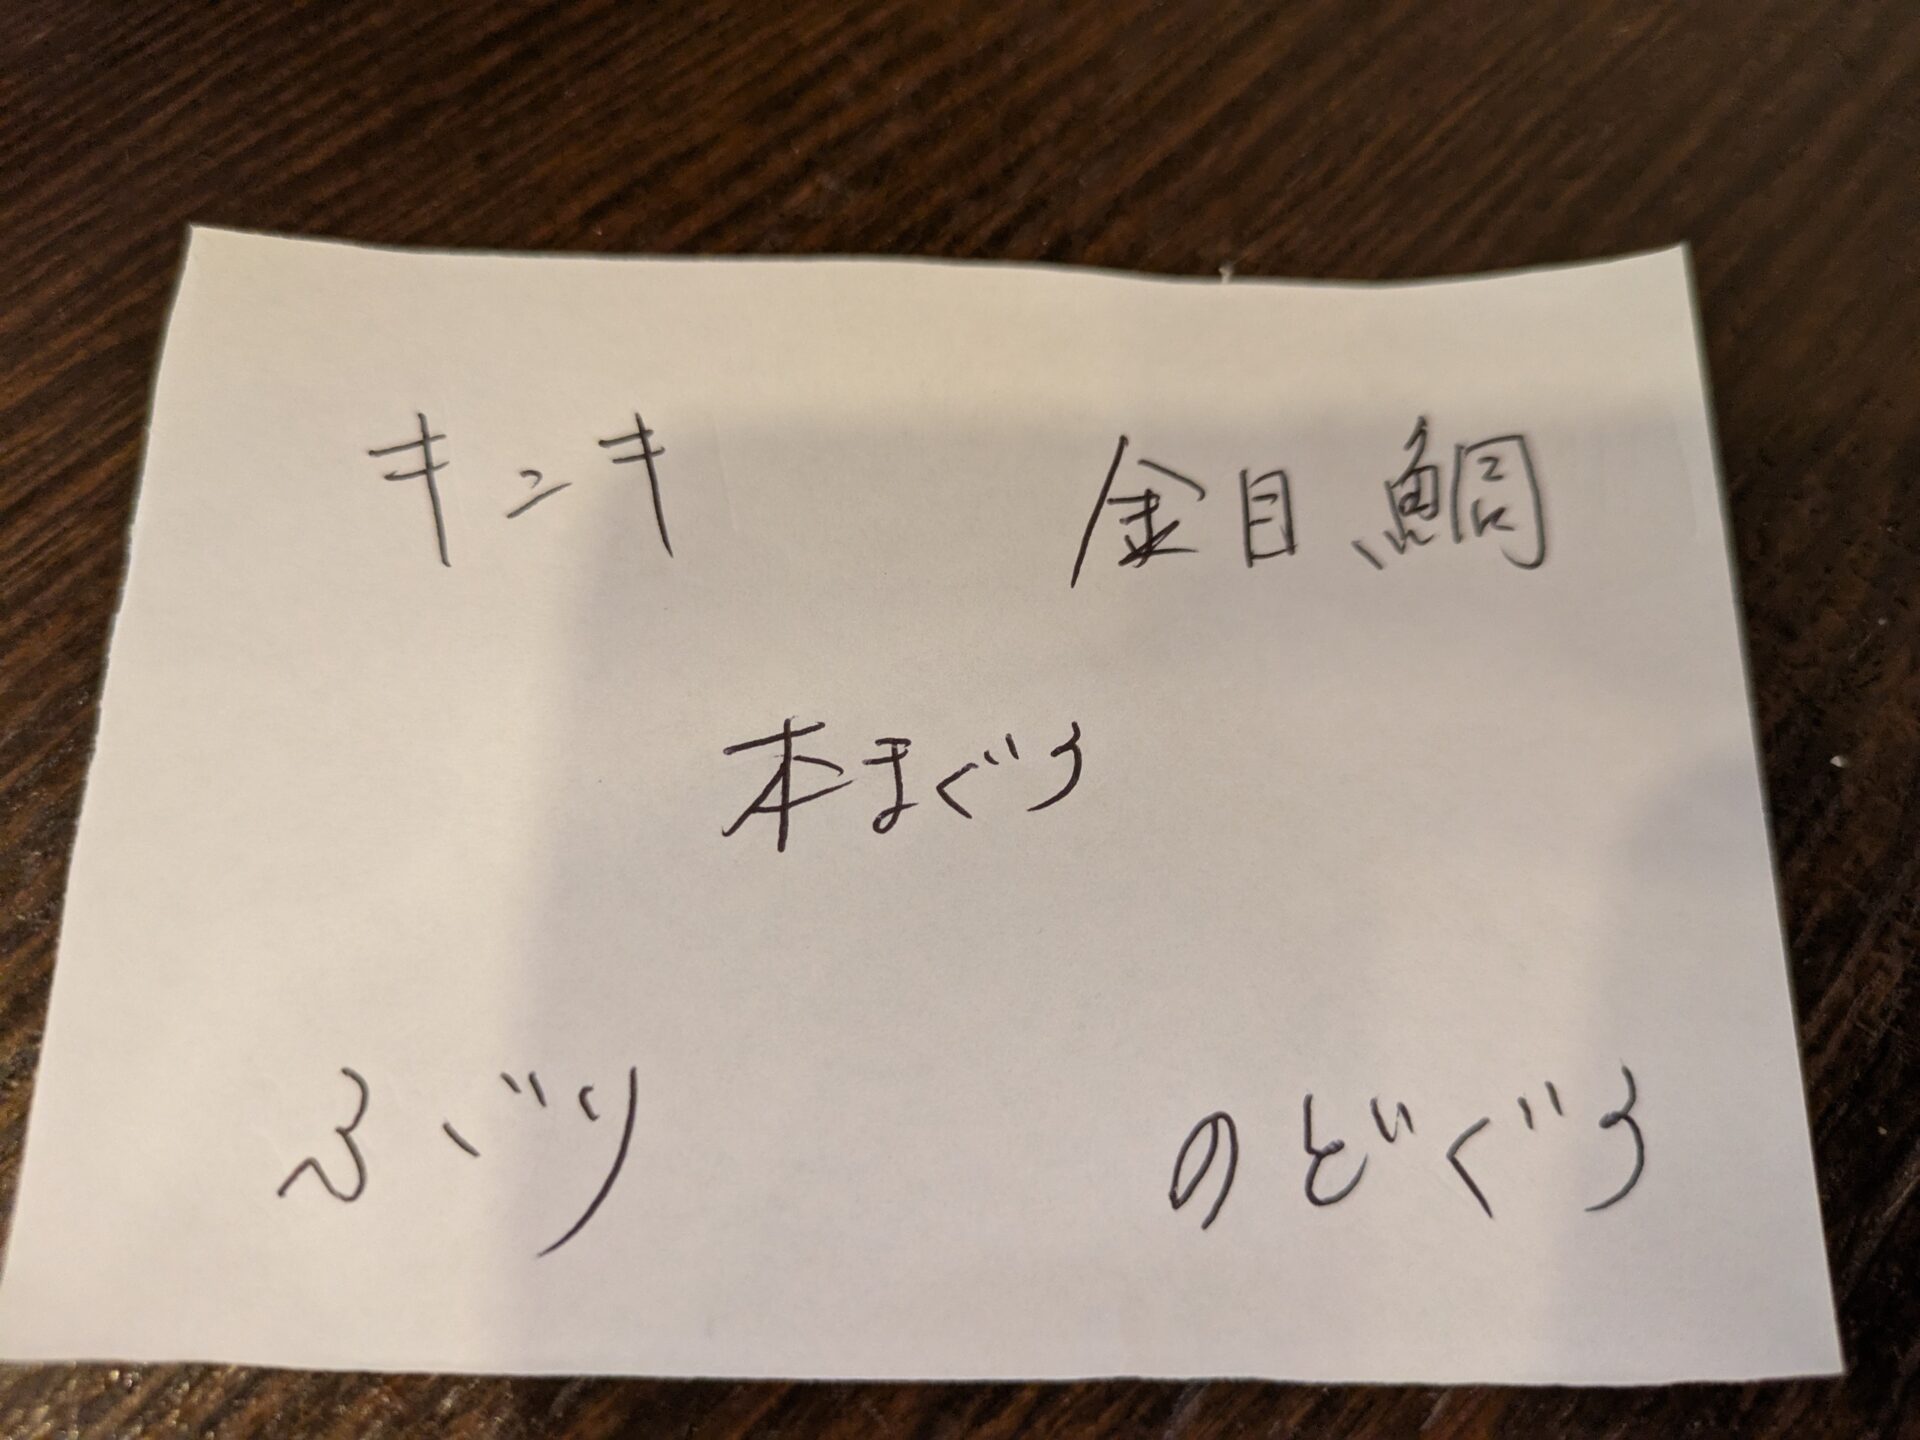 キンキ 金目鯛
本まぐろ
ぶり のどぐろ